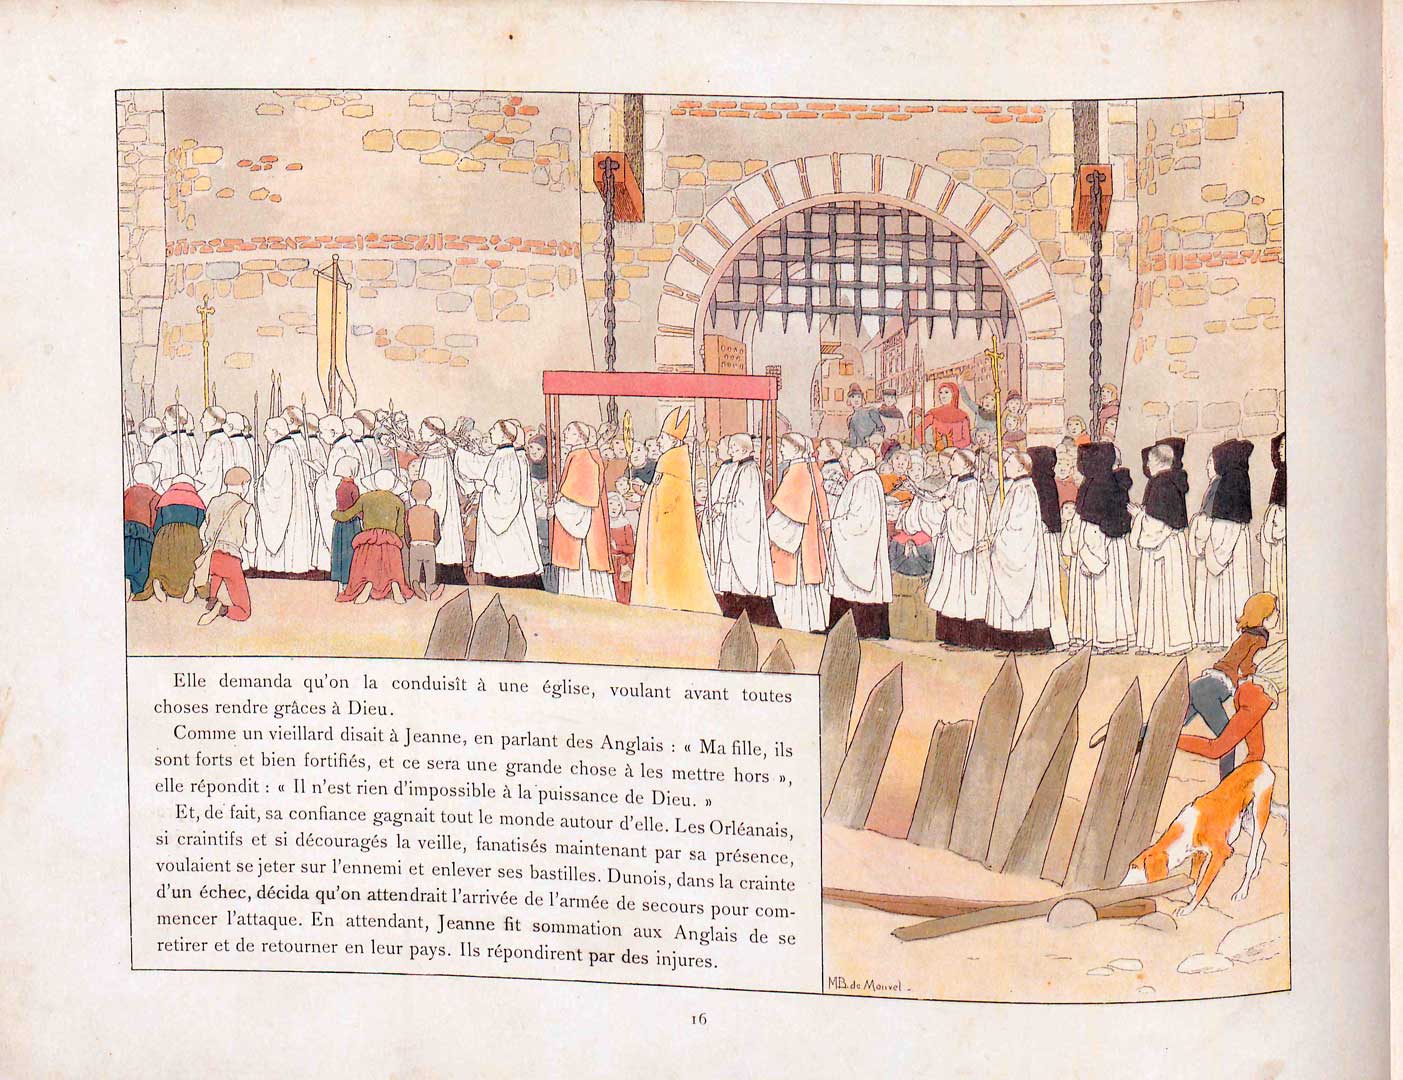 Elle demanda qu'on la conduisît à une église, voulant avant toutes
choses rendre grâces à Dieu.
Comme un vieillard disait à Jeanne, en parlant des Anglais : « Ma fille, ils
sont forts et bien fortifiés, et ce sera une grande chose à les mettre hors »,
elle répondit : « Il n'est rien d'impossible à la puissance de Dieu. »
Et, de fait, sa confiance gagnait tout le monde autour d'elle. Les Orléanais,
si craintifs et si découragés la veille, fanatisés maintenant par sa présence,
voulaient se jeter sur l'ennemi et enlever ses bastilles. Dunois, dans la crainte
d'un échec, décida qu'on attendrait l'arrivée de l'armée de secours pour com-
mencer l'attaque. En attendant, Jeanne fit sommation aux Anglais de se
retirer et de retourner en leur pays. Ils répondirent par des injures.
MB. de Monvel -
16